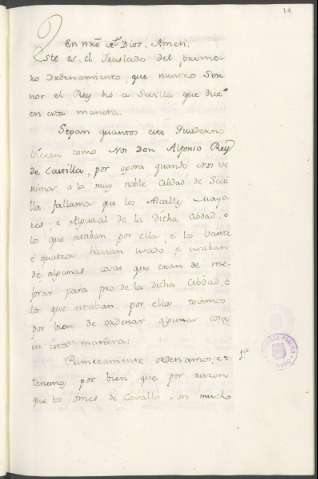 14
En nře de Dios. Amen.
Este es el Traslado del prime
ro Ordenamiento que nuestro Sen
nor el Rey hizo a Sevilla que dice
en esta manera.
Sepan quantos este Quaderno
vieren como Nos Don Alfonso Rey
de Castilla, por quanto
a la muy noble Cibdad de Sevi
lla fallamos que los Alcalles Mayo
res, e Alguacil de la dicha Cibdad, e
los que estaban por ella, e los veinte
e quatro havian usado e usaban
de algunas cosas que eran de me
jorar para pro de la dicha Cibdad, e
los que estaban por ellos tovimos
por bien de ordenar algunas cosas
en esta manera:
Primeramente ordenamos, et
tenemos por bien que por razon
que los omes de Cavallo, son mucho